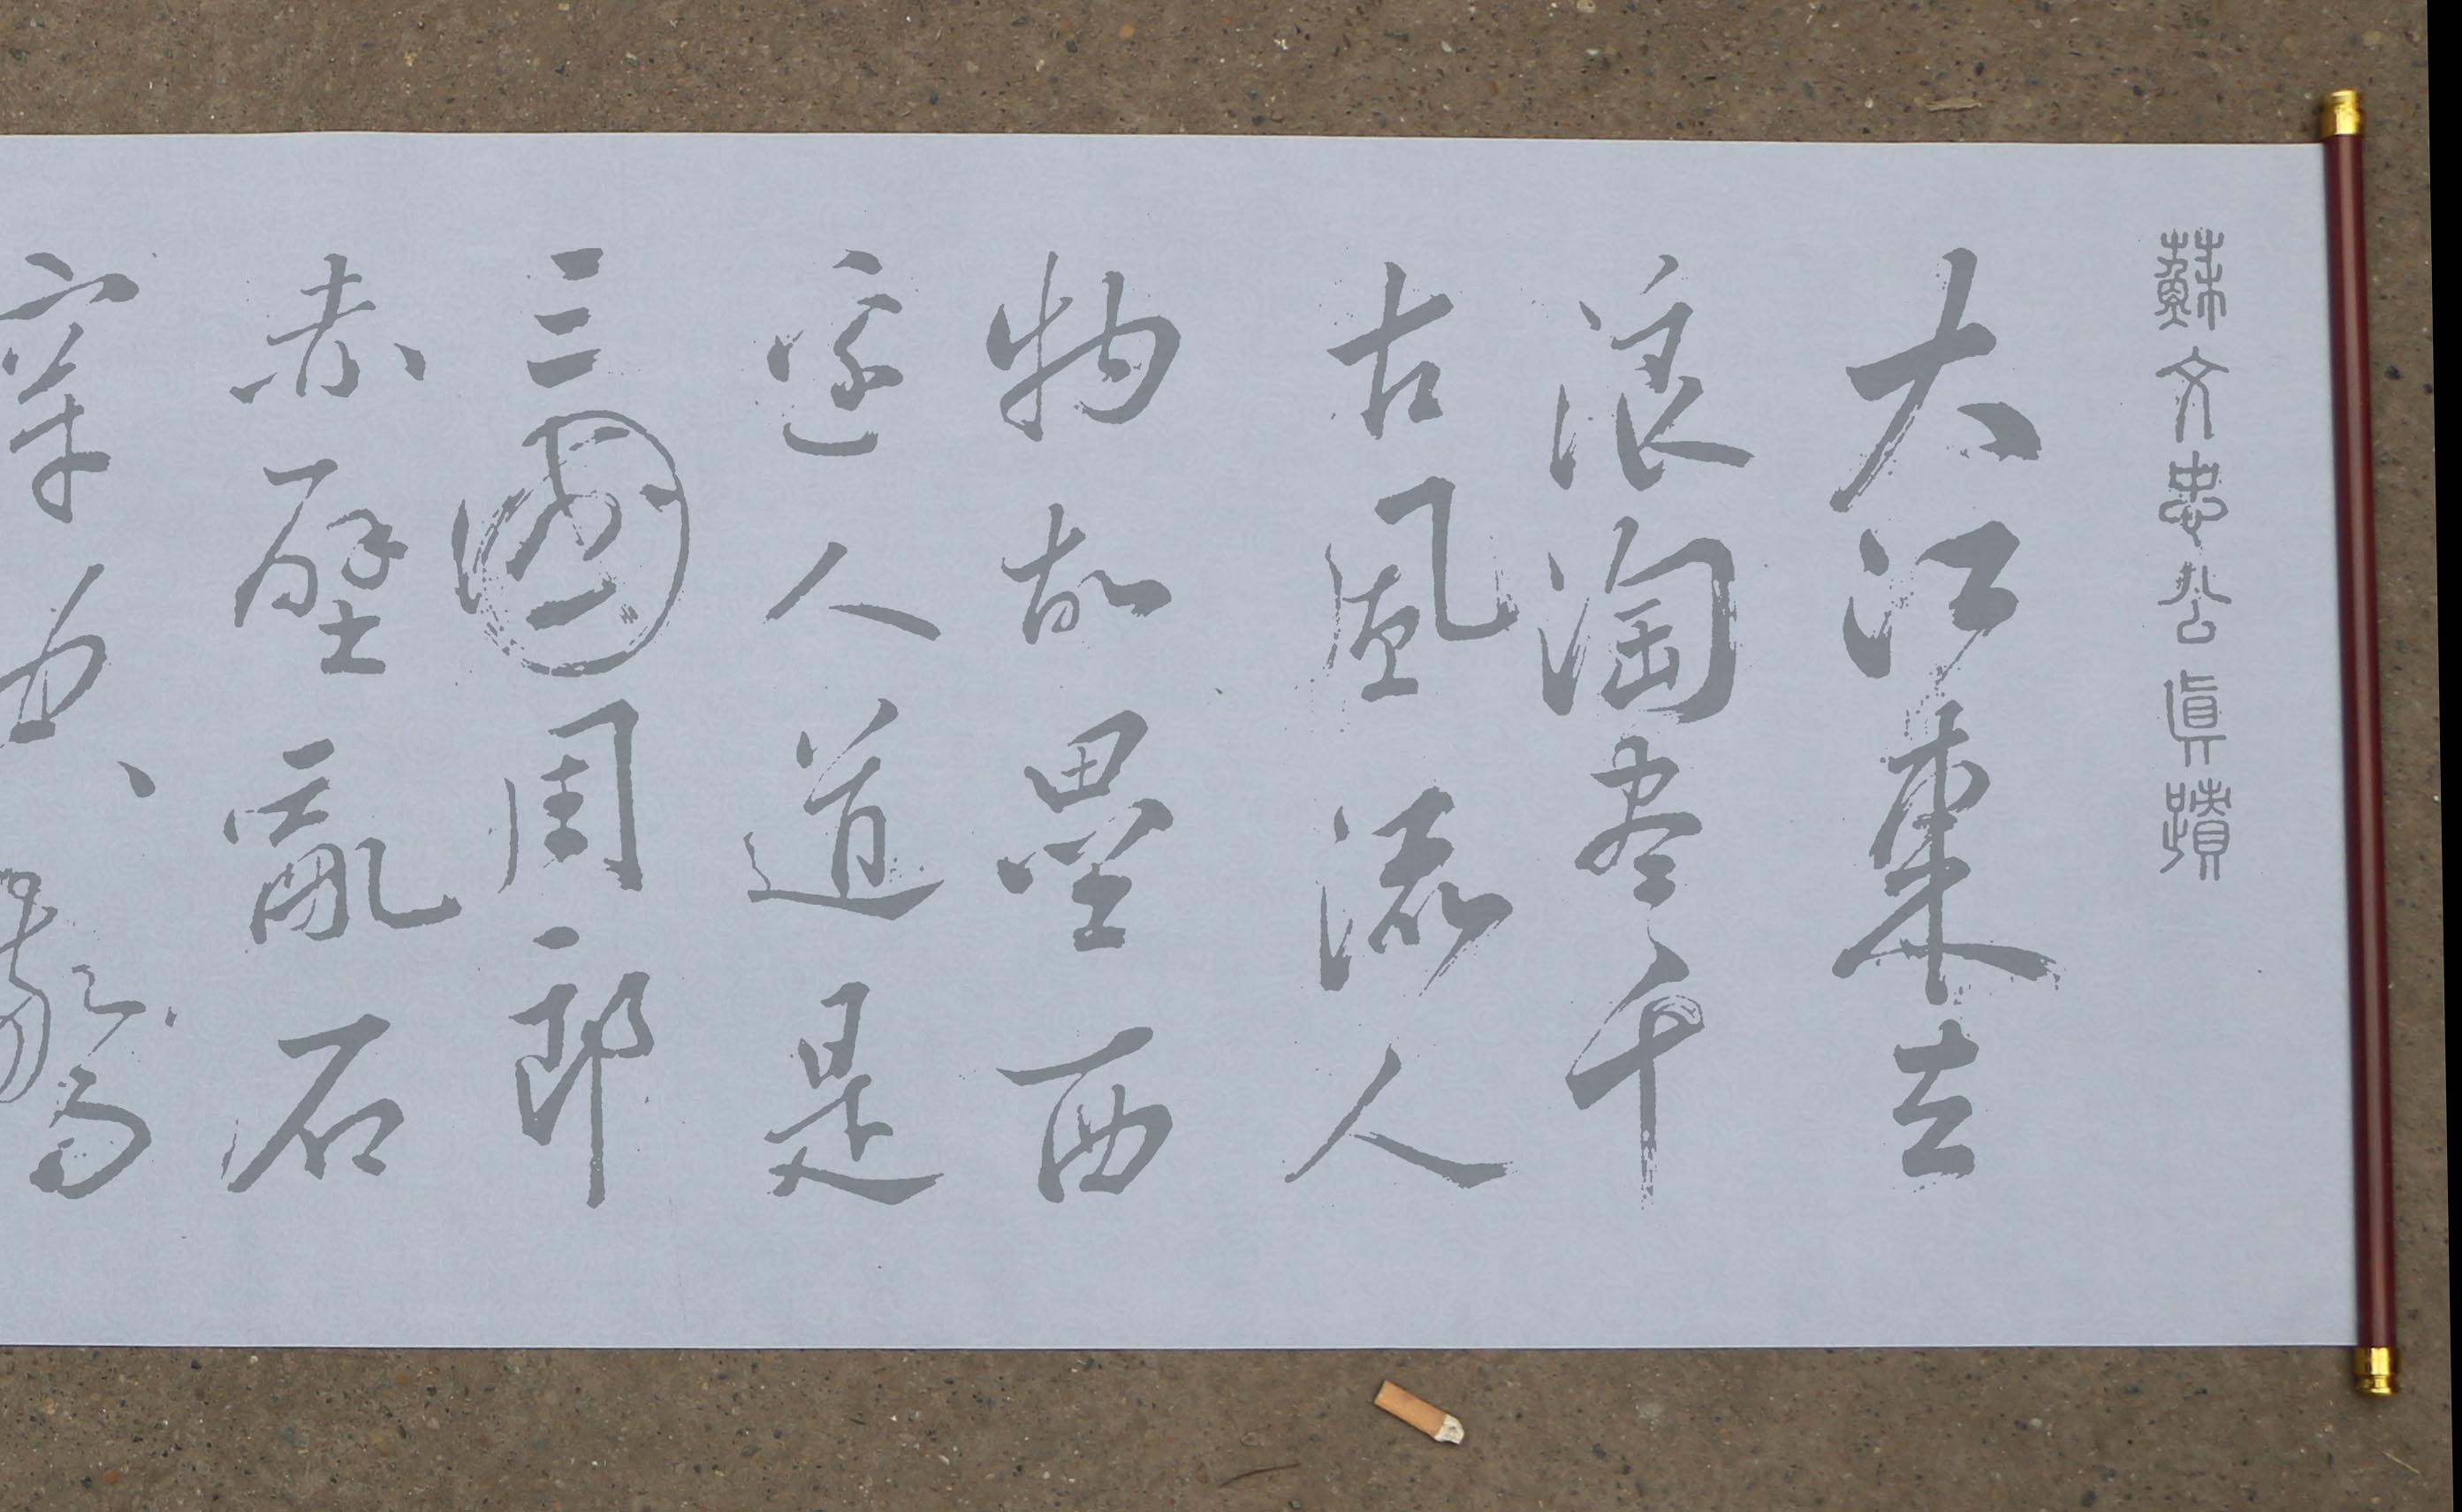 蘇文忠公眞蹟
大江東去
浪淘盡千
古風流人
物故壘西
邊人道是
三國周郎
赤壁亂石
穿空驚